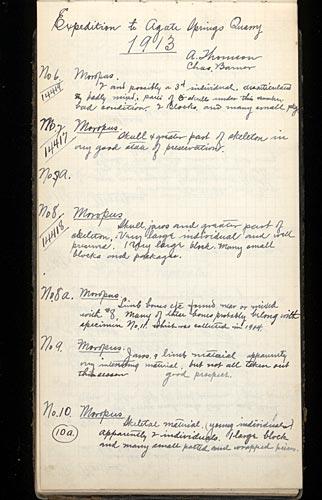 Expedition to Agate Springs Quarry
1913
A. Thomson
Chas. Barner
No 6. Moropus.
2 and possibly a 3d individual, disarticulated
& badly mixed, parts of skulls under this number,
bad condition. 2 Blocks, and many small pkg.
No 7. Moropus.
14417
Skull & greater part of skeleton in
very good state of preservation.
No 7a.
No 8. Moropus
14418
Skull, jaws and greater part of
skeleton, Very large individual and well
preserved. 1 Very large block. Many small
blocks and packages.
No 8a. Moropus
Limb bones etc found near or mixed
with #8. Many of these bones probably belong with
specimen No. 11. which was collected in 1914.
No 9. Moropus.
Jaws & limb material apparently
very interesting material, but not all taken out
this season good prospect.
No. 10. Moropus
10a
Skeletal material. (young individuals)
apparently 2 individuals. 1 large block
and many small pasted and wrapped pieces.